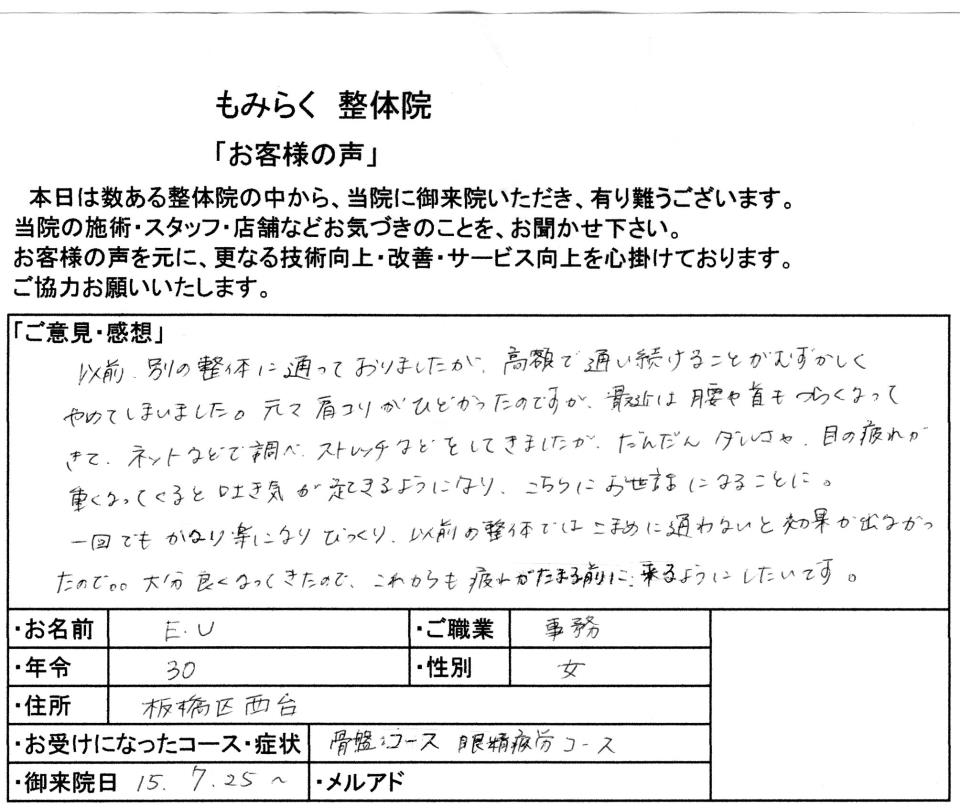 もみらく 整体院
「お客様の声」
本日は数ある整体院の中から、当院に御来院いただき、有り難うございます。
当院の施術・スタッフ・店舗などお気づきのことを、お聞かせ下さい。
お客様の声を元に、更なる技術向上・改善・サービス向上を心掛けております。
ご協力お願いいたします。
「ご意見・感想」
以前、別の整体に通っておりましたが、高額で通い続けることがむずかしく
やめてしまいました。元々肩コリがひどかったのですが、最近は腰や首もつらくなって
きて、ネットなどで調べ、ストレッチなどをしてきましたが、だんだんダルさや、目の疲れが
重くなってくると吐き気が起きるようになり、こちらにお世話になることに。
一回でもかなり楽になりびっくり、以前の整体ではこまめに通わないと効果が出なかっ
たので。。大分良くなってきたので、これからも疲れがたまる前に、来るようにしたいです。
・お名前 E.U ・ご職業 事務
・年令 30 ・性別 女
・住所 板橋区西台
・お受けになったコース・症状 骨盤コース 眼精疲労コース
・御来院日 15. 7.25 ~ ・メルアド